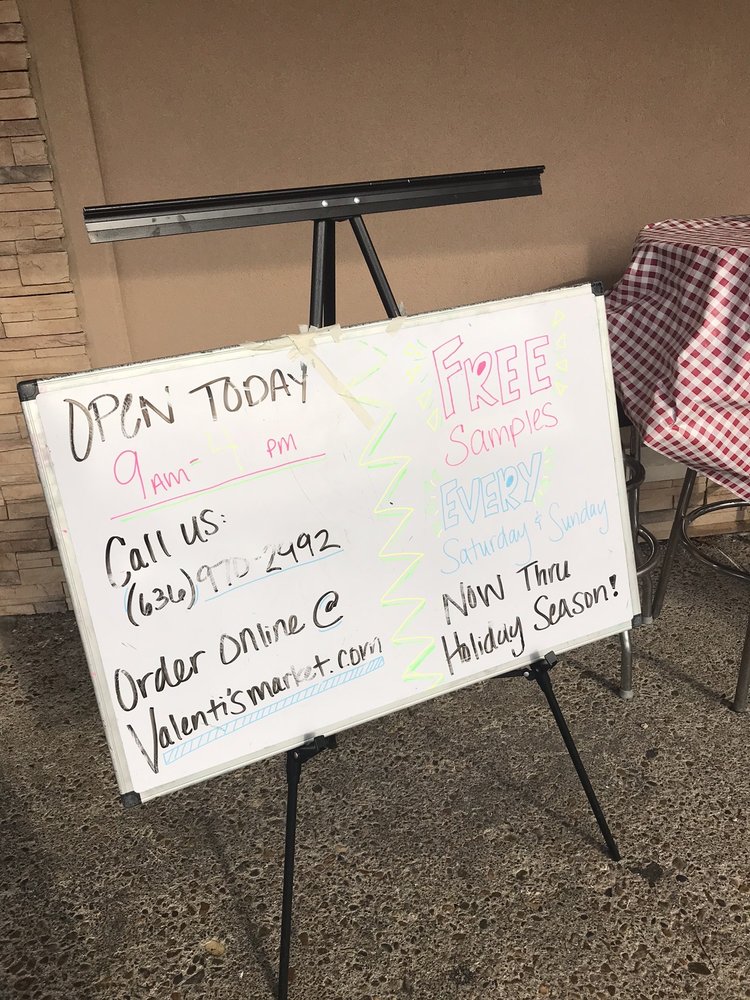 OPEN TODAY
9AM-4 PM
Call us:
(636) 970-2492
Order Online @
Valenti'smarket.com
FREE
Samples
EVERY
Saturday & Sunday
NOW Thru
Holiday Season!